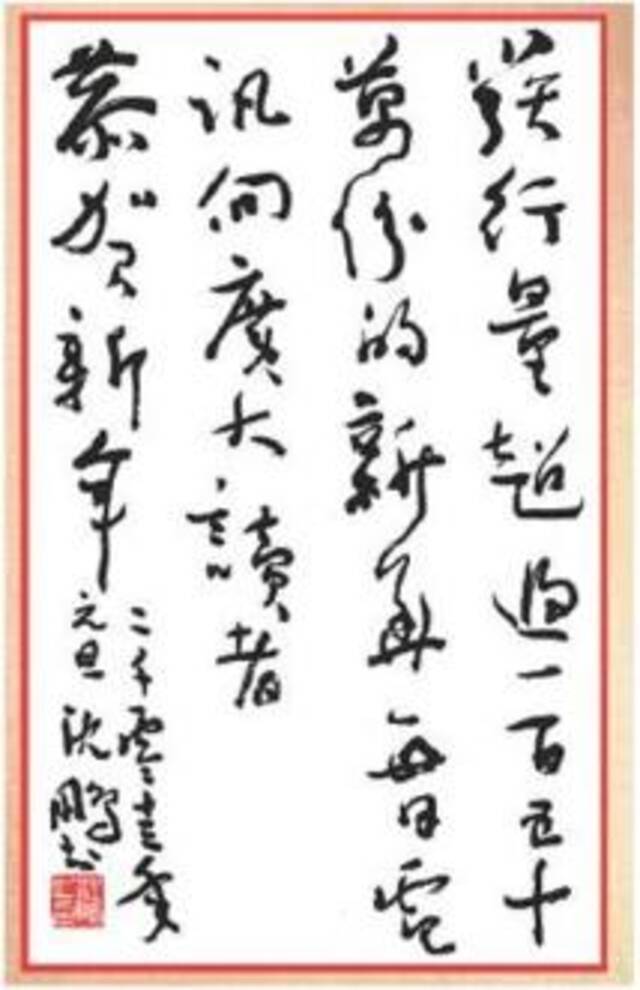 發行量超過一百五十
萬份的新華每日電
訊向廣大讀者
恭賀新年
二千零壹年
元旦沈鵬書